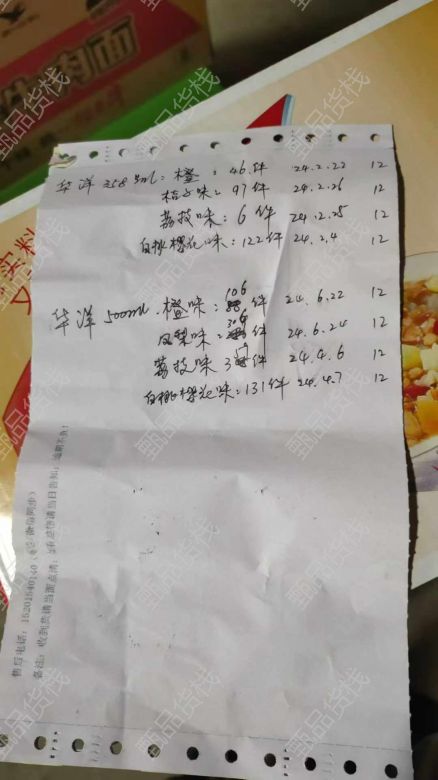 肉面
华洋 358ml: 橙: 46件 24.2.22 12
桔子味: 97件 24.2.26 12
荔枝味: 6件 24.12.25 12
白桃樱花味: 122件 24.2.4 12
华洋 500ml: 橙味: 106件 24.6.22 12
凤梨味: 306件 24.6.24 12
荔枝味 37件 24.4.6 12
白桃樱花味: 131件 24.4.7 12
甄品货栈